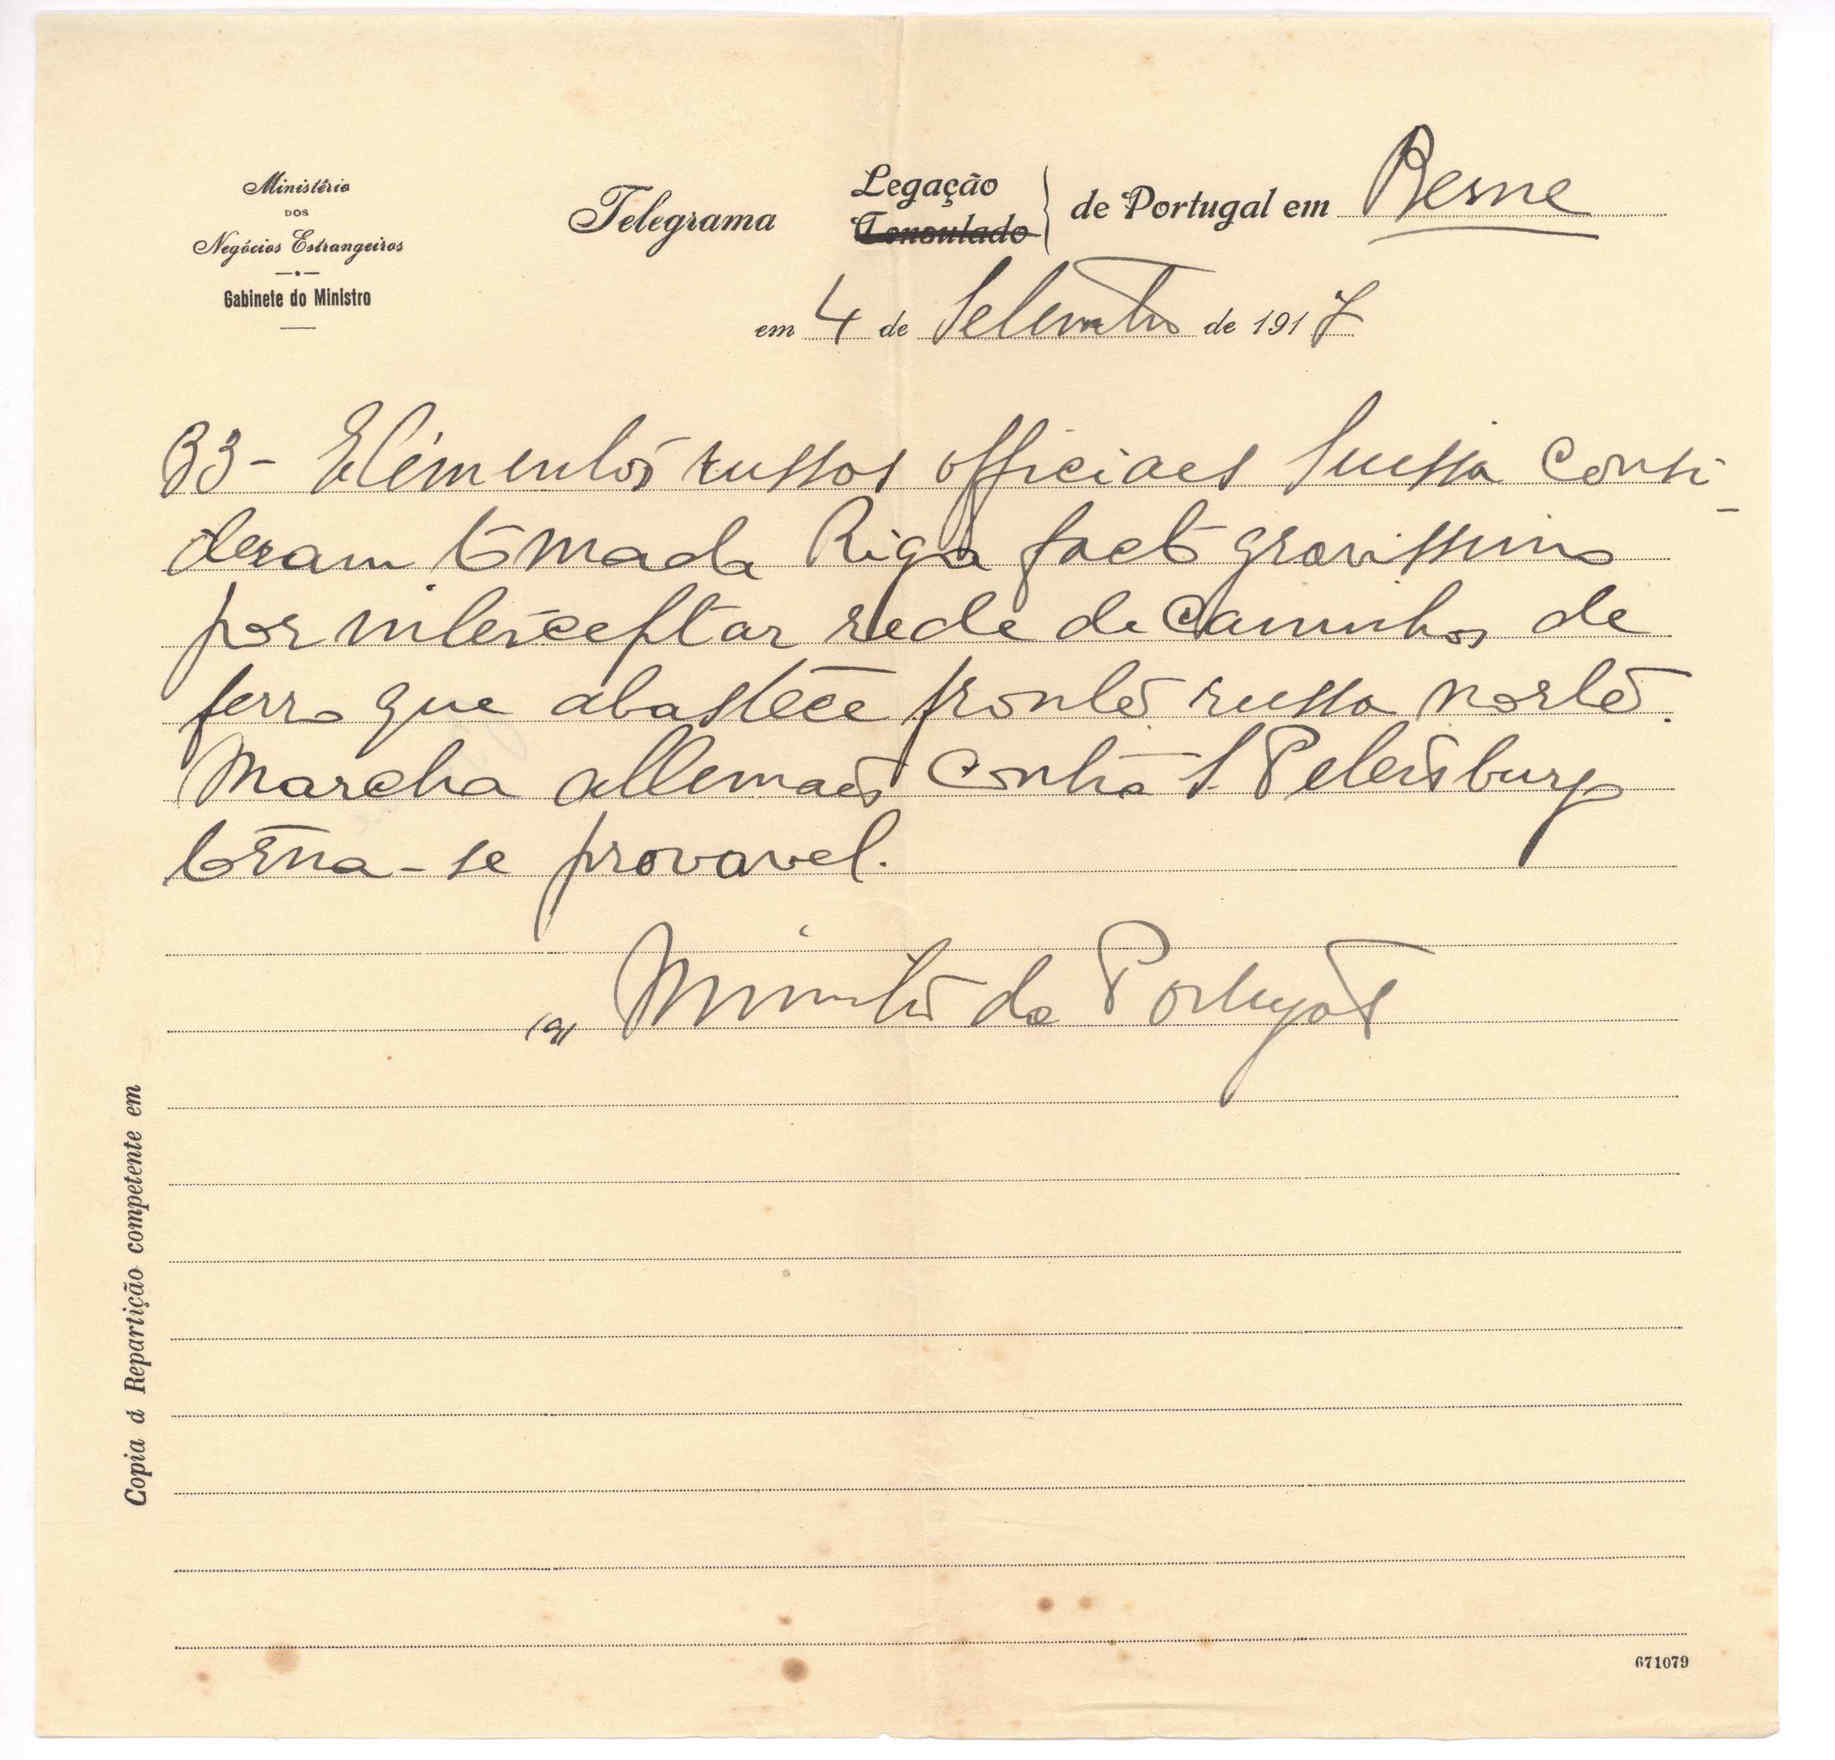 Ministério
DOS
Negócios Estrangeiros
Gabinete do Ministro
Telegrama
Legação
Consulado
de Portugal em Berne
em 4 de Setembro de 1917
33 - Elementos russos officiaes Suissa consi-
deram tomada Riga facto gravissimo
por interceptar rede de caminhos de
ferro que abastece fronte russa norte.
Marcha allemães contra S. Petersburgo
torna-se provavel.
(a) Ministro de Portugal
Copia á Repartição competente em
671079